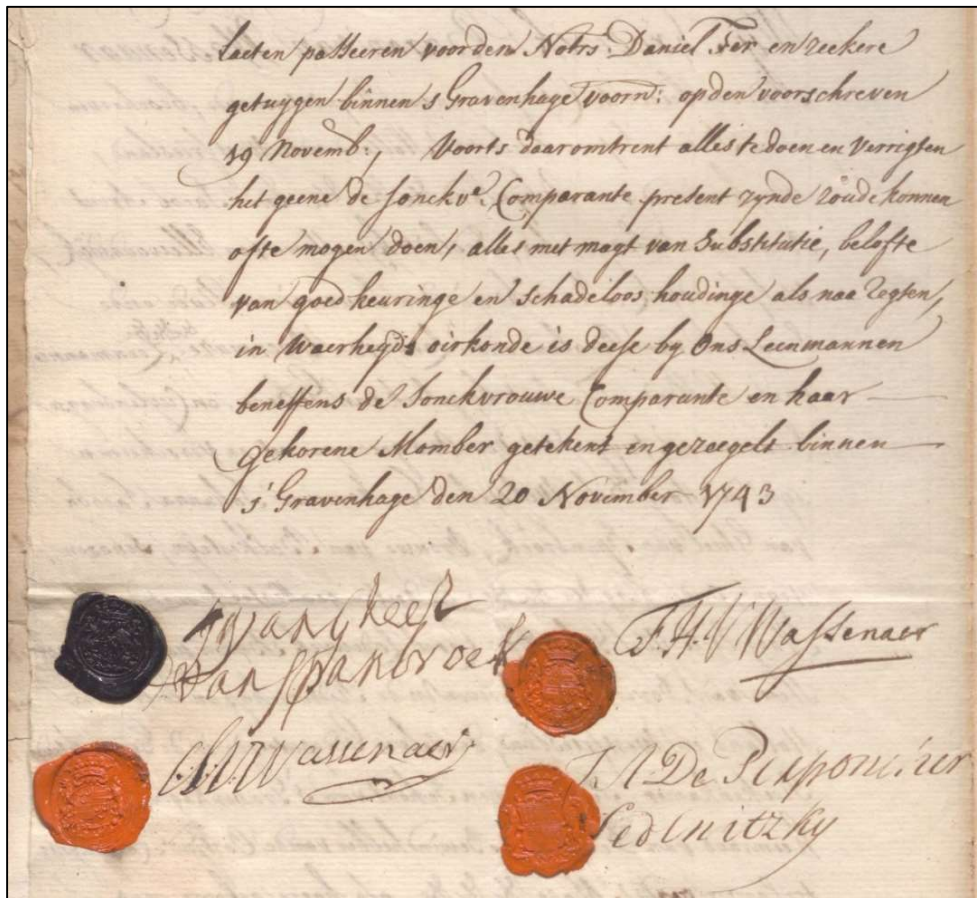 laeten passeeren voor den Notrs. Daniel Fer en zeekere
getuygen binnen s Gravenhage voorn: op den voorschreven
19 Novemb:, Voorts daaromtrent alles te doen en verrigten
het geene de Jonckve. Comparante present zynde zoude konnen
ofte mogen doen, alles met magt van Substitutie, belofte
van goedkeuringe en schadeloos houdinge als naa regten,
in Waerheyds oirkonde is deese by Ons Leenmannen
beneffens de Jonckvrouwe Comparante en haar
gekorene Momber getekent en gezeegelt binnen
s' Gravenhage den 20 November 1743
van
van Spanbroek
F. H. V Wassenaer
Wassenaer
De
Sedlnitzky